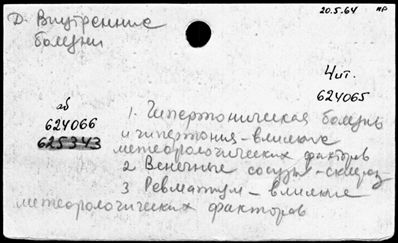 20.5.64 нр
Д. Внутренние
болезни
Чит.
624065
аб
624066
625343
1. Гипертоническая болезнь
и гипертония - влияние
метеорологических факторов
2 Венечные сосуды - склероз
3 Ревматизм - влияние
метеорологических факторов